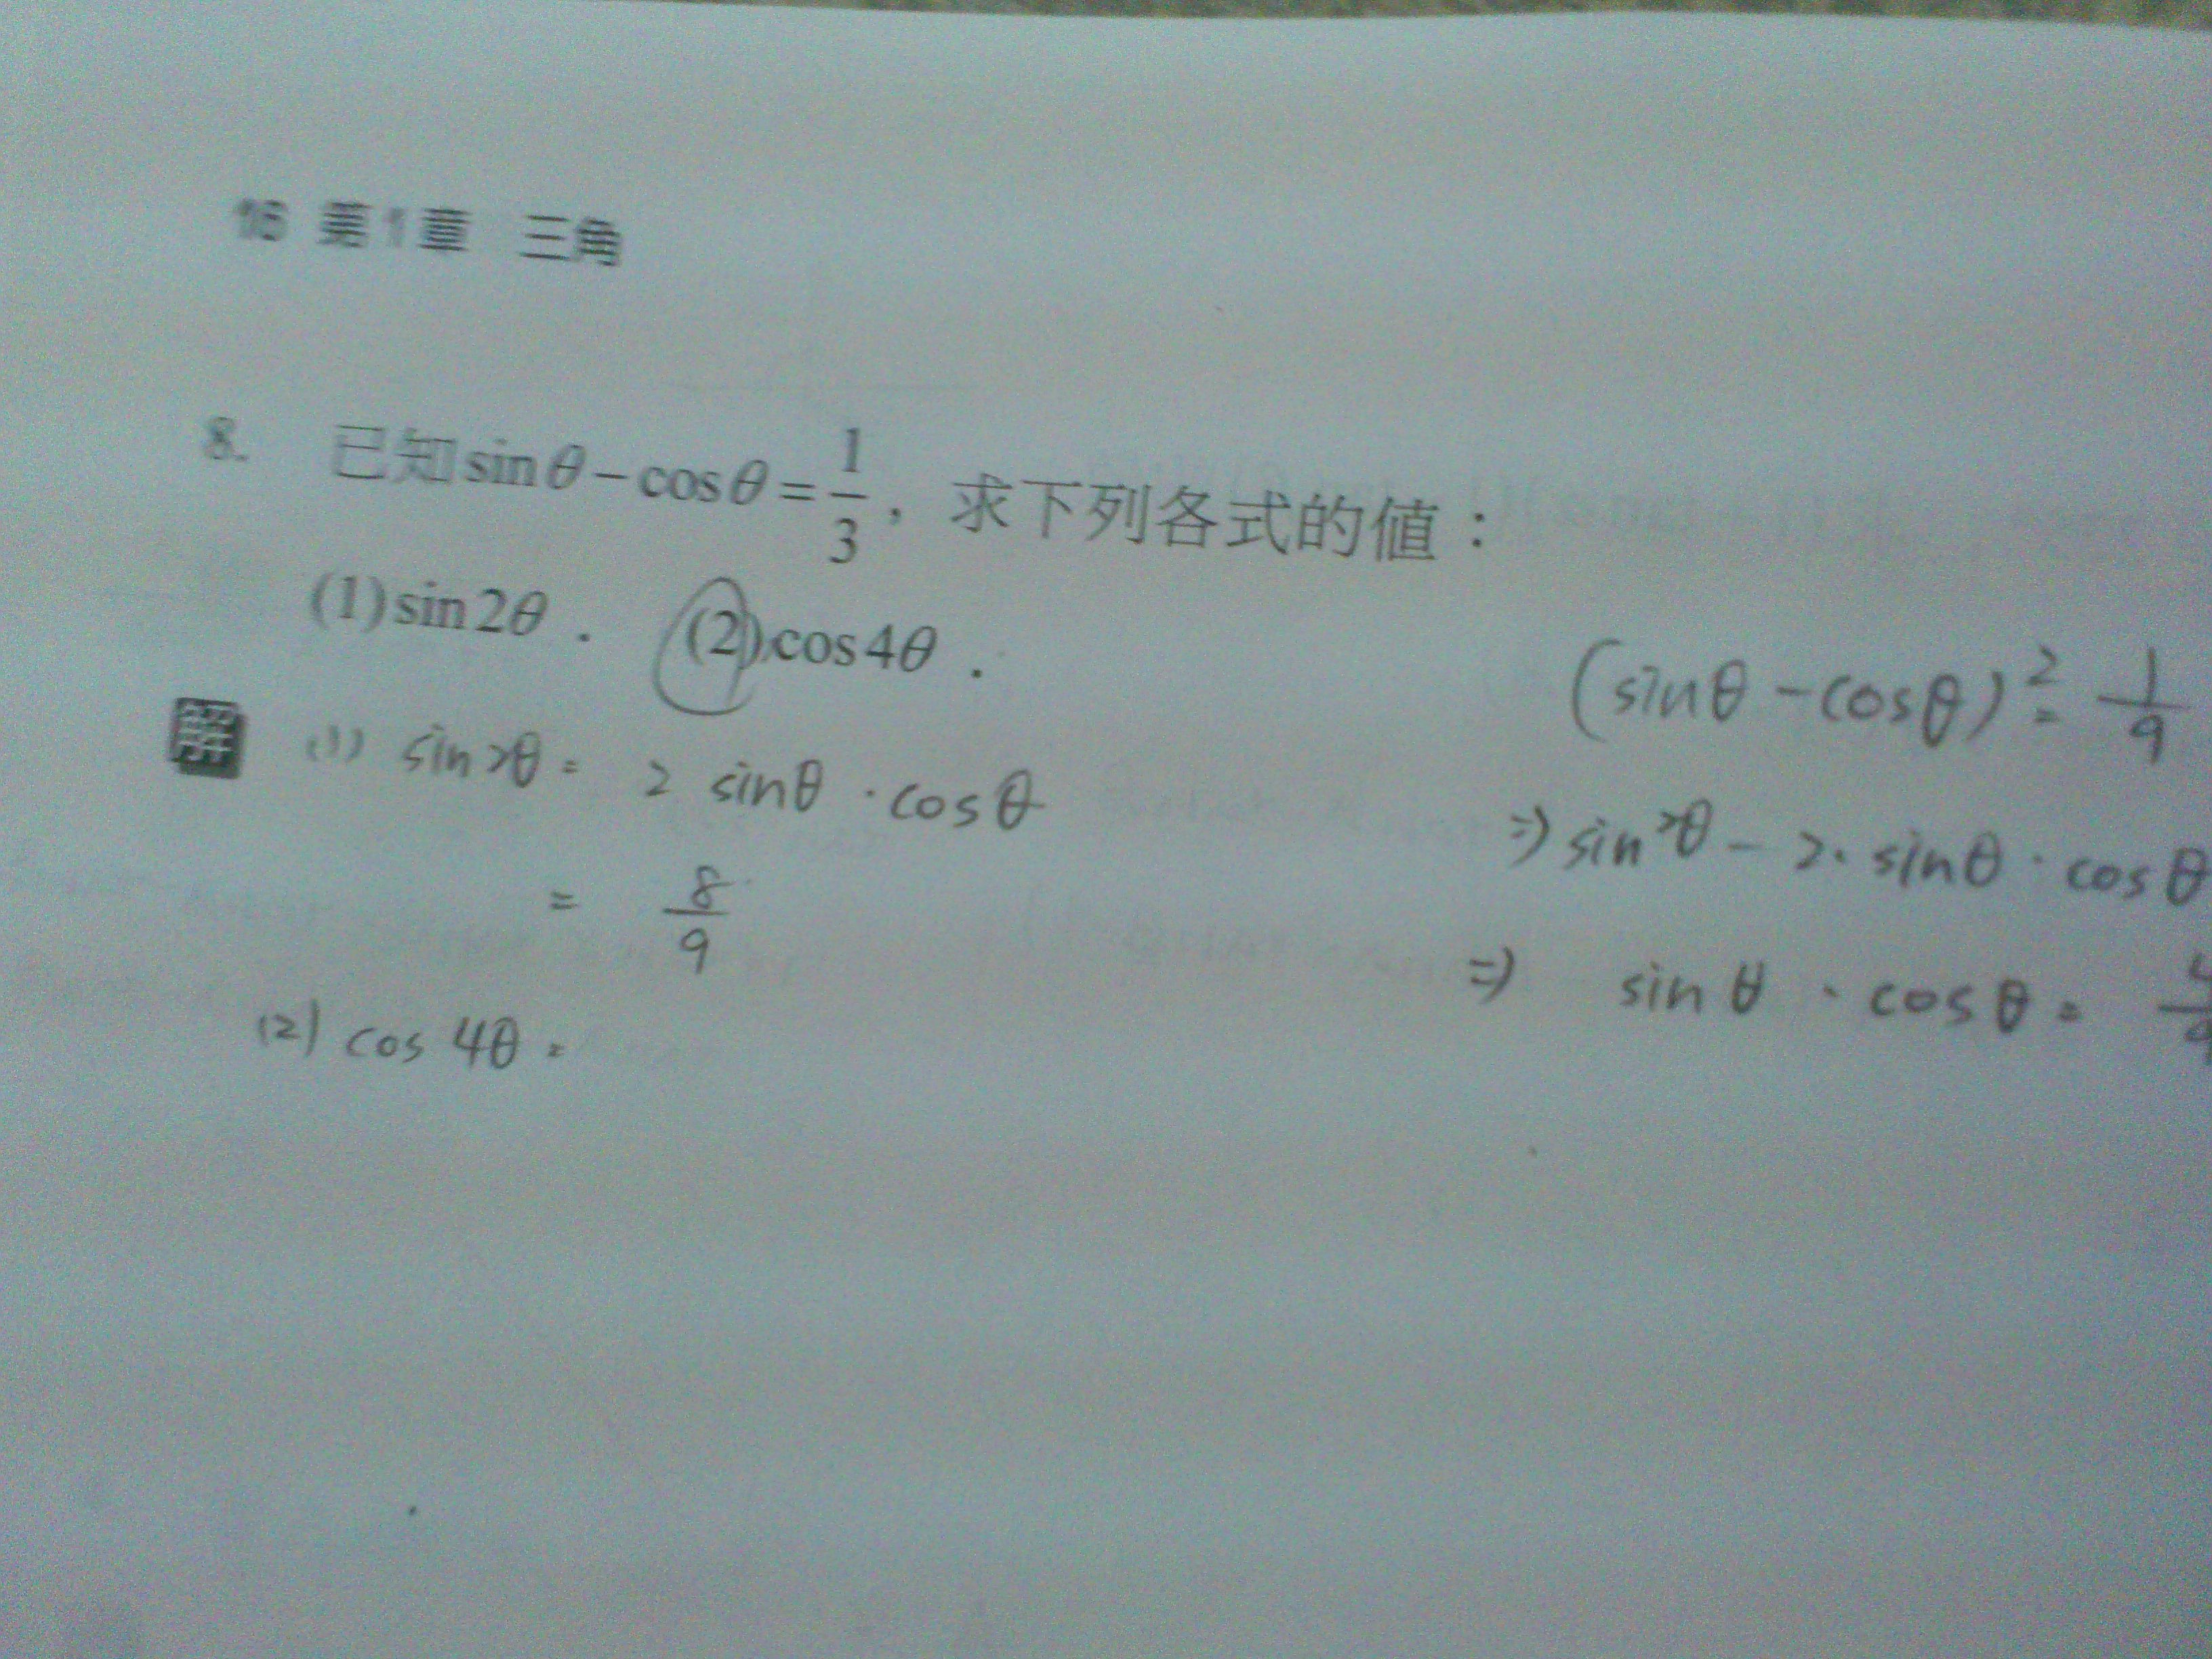 16 第1章 三角
8. 已知sinθ-cosθ=1/3，求下列各式的值：
(1)sin2θ． (2)cos4θ．
解 (1) sin2θ = 2 sinθ·cosθ
= 8/9
(2) cos 4θ =
(sinθ-cosθ)²= 1/9
⇒ sin²θ - 2·sinθ·cosθ
⇒ sinθ·cosθ = 4/9